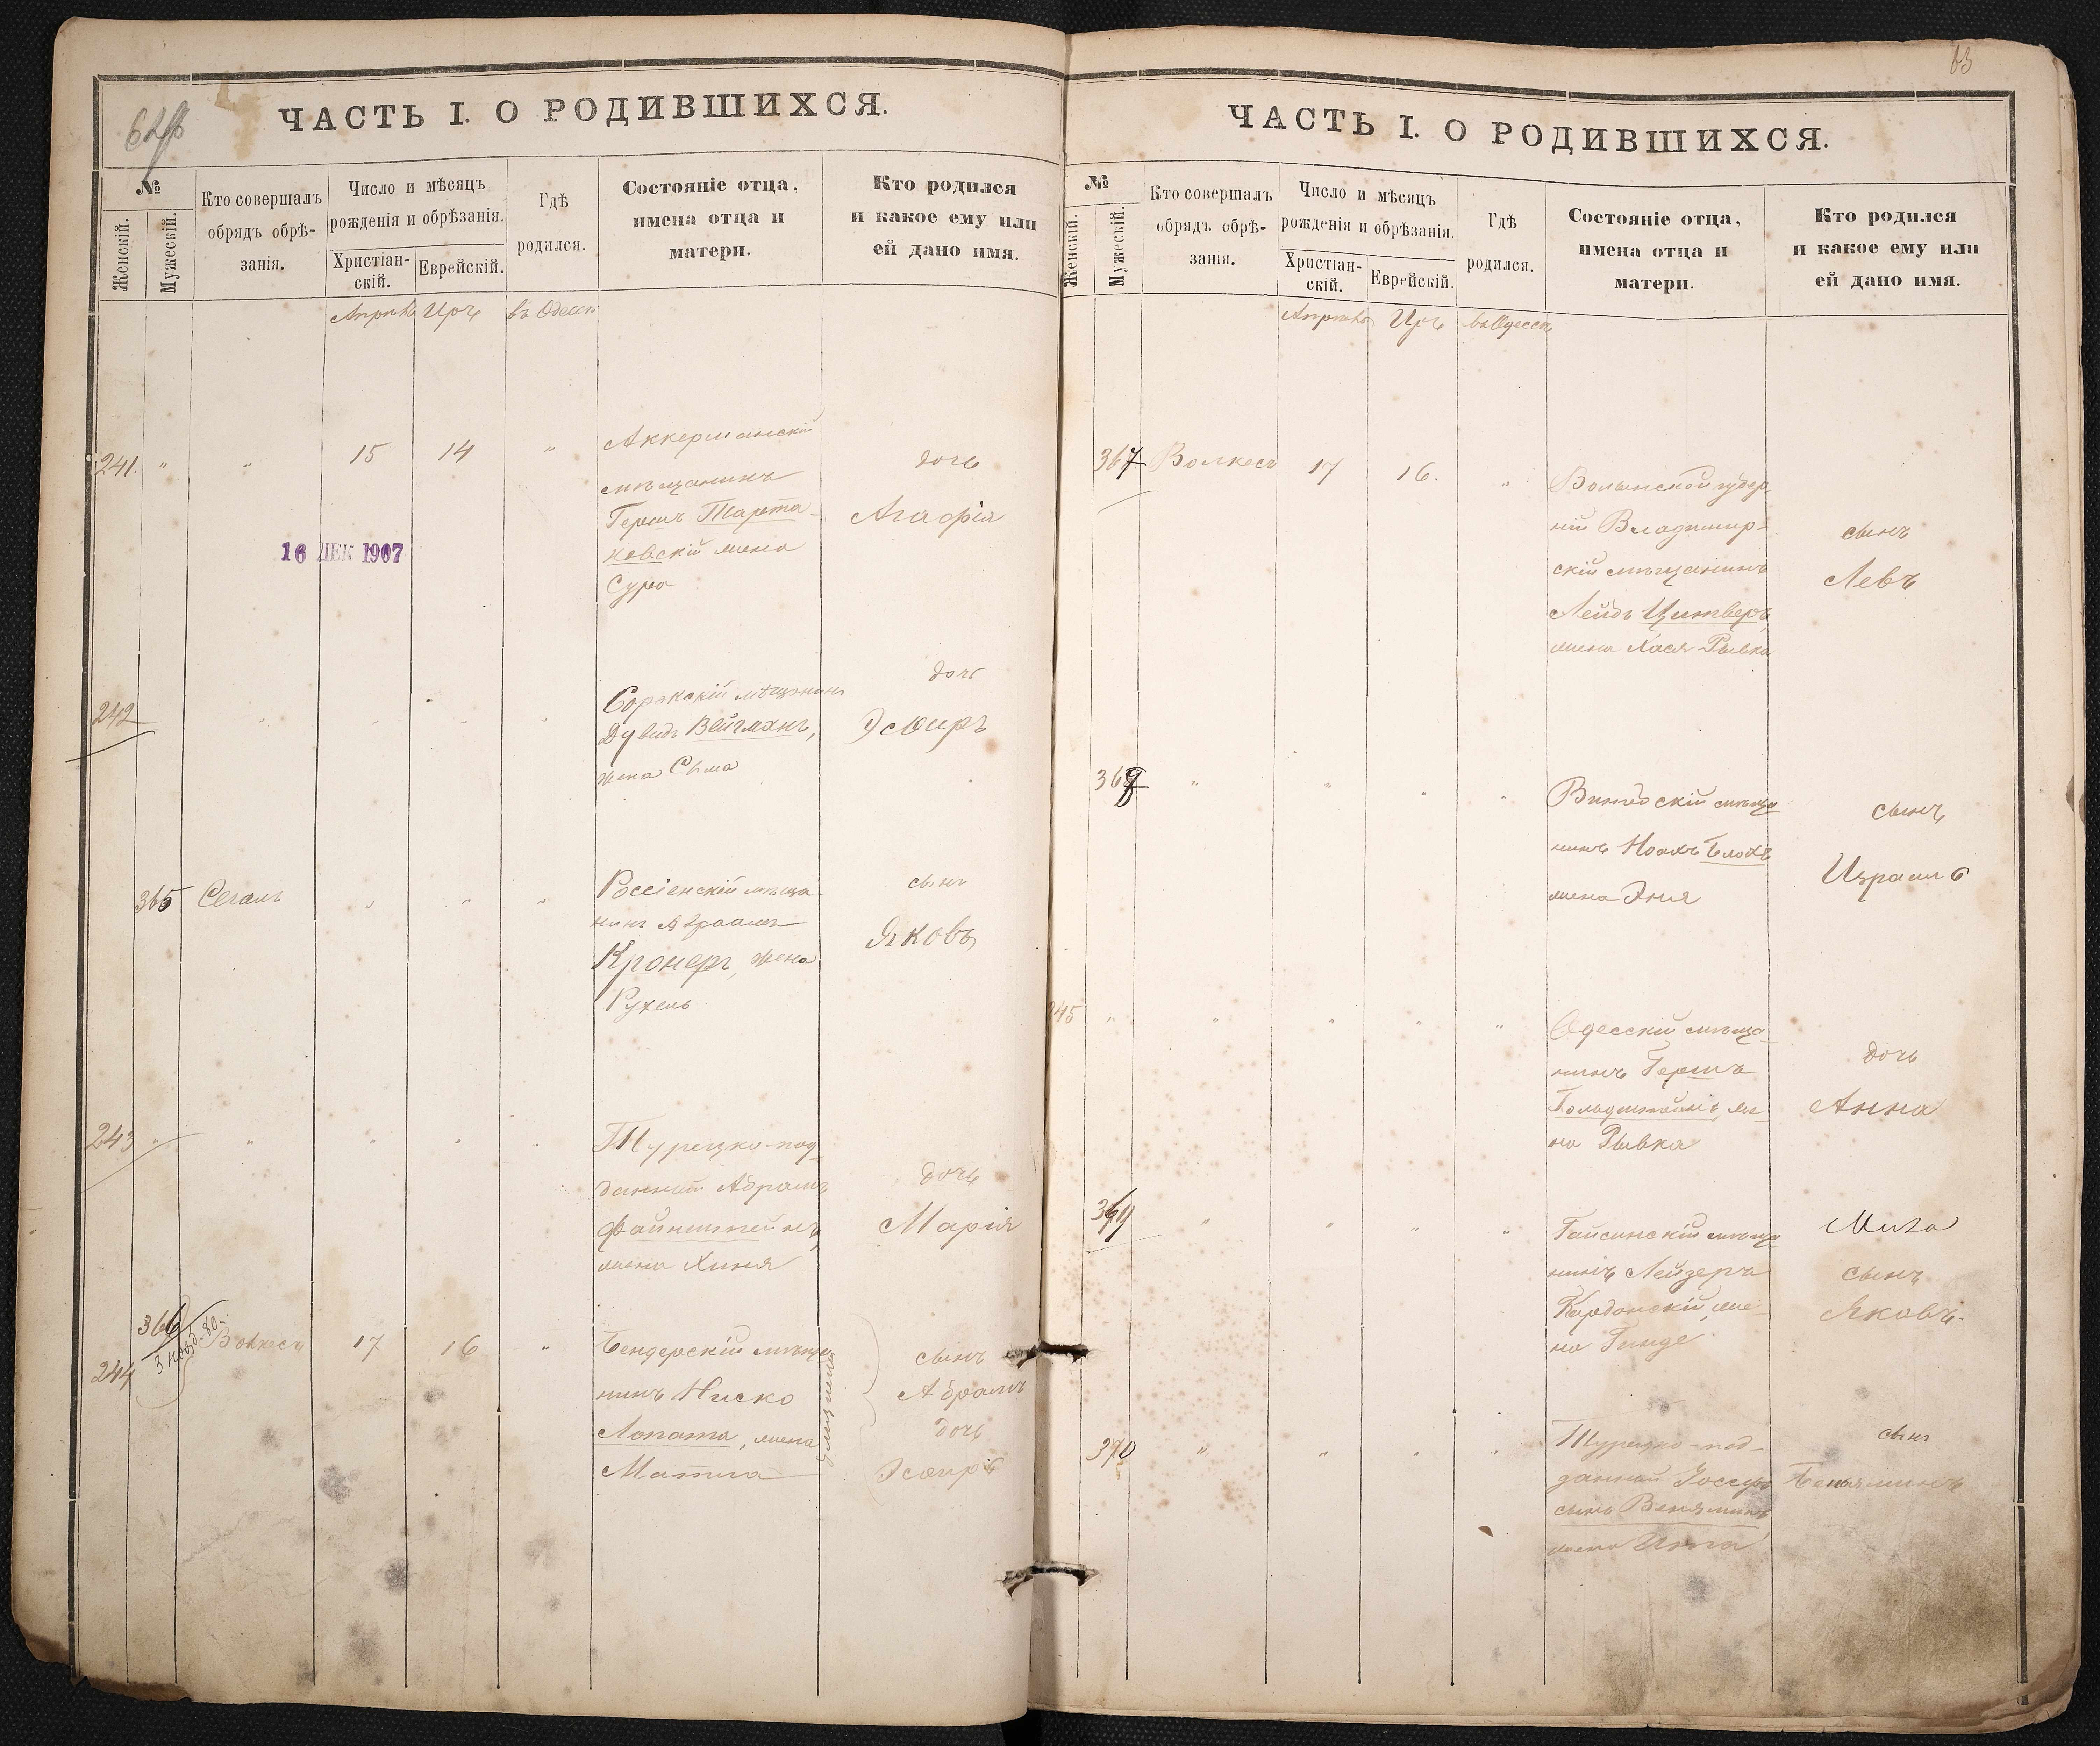 ЧАСТЬ I. О РОДИВШИХСЯ.
№
Женскій.
Мужескій.
Кто совершалъ
обрядъ обрѣ-
занія.
Число и мѣсяцъ
рожденія и обрѣзанія.
Христіан-
скій.
Еврейскій.
Гдѣ
родился.
Состояніе отца,
имена отца и
матери.
Кто родился
и какое ему или
ей дано имя.
Апрѣль Иръ въ Одессѣ
241. " " 15 14 "
Аккерманскій
мѣщанинъ
Гершъ Тарта-
ковскій жена
Сура
дочь
Агафія
16 ДЕК 1907
242
Сорокскій мѣщанинъ
Дувидъ Вейгманъ,
жена Сыма
дочь
Эсѳиръ
365 Сегалъ " " "
Россіенскій мѣща-
нинъ Абраамъ
Кронеръ, жена
Рухель
сынъ
Яковъ
243 " " " " "
Турецко-под-
данный Абрамъ
Файнштейнъ,
жена Хиня
дочь
Марія
366
244
Волкесъ 17 16 "
Бендерскій мѣща-
нинъ Ниско
Лопата, жена
Матля
сынъ
Абрамъ
дочь
Эсѳирь
63
ЧАСТЬ I. О РОДИВШИХСЯ.
№
Женскій.
Мужескій.
Кто совершалъ
обрядъ обрѣ-
занія.
Число и мѣсяцъ
рожденія и обрѣзанія.
Христіан-
скій.
Еврейскій.
Гдѣ
родился.
Состояніе отца,
имена отца и
матери.
Кто родился
и какое ему или
ей дано имя.
Апрѣль Иръ въ Одессѣ
367 Волкесъ 17 16. "
Волынской губер-
ніи Владимир-
скій мѣщанинъ
Лейбъ Цимберъ,
жена Хася-Рывка
сынъ
Левъ
368 " " " "
Витебскій мѣща-
нинъ Ноахъ Блохъ
жена Эня
сынъ
Израиль
245 " " " " "
Одесскій мѣща-
нинъ Гершъ
Гольдштейнъ, же-
на Рывка
дочь
Анна
369 " " " "
Гайсинскій мѣща-
нинъ Лейзеръ
Кардонскій, же-
на Гинде
сынъ
Яковъ.
370 " " " "
Турецко-под-
данный Іосефъ
сынъ Веняминъ
жена
сынъ
Беньяминъ